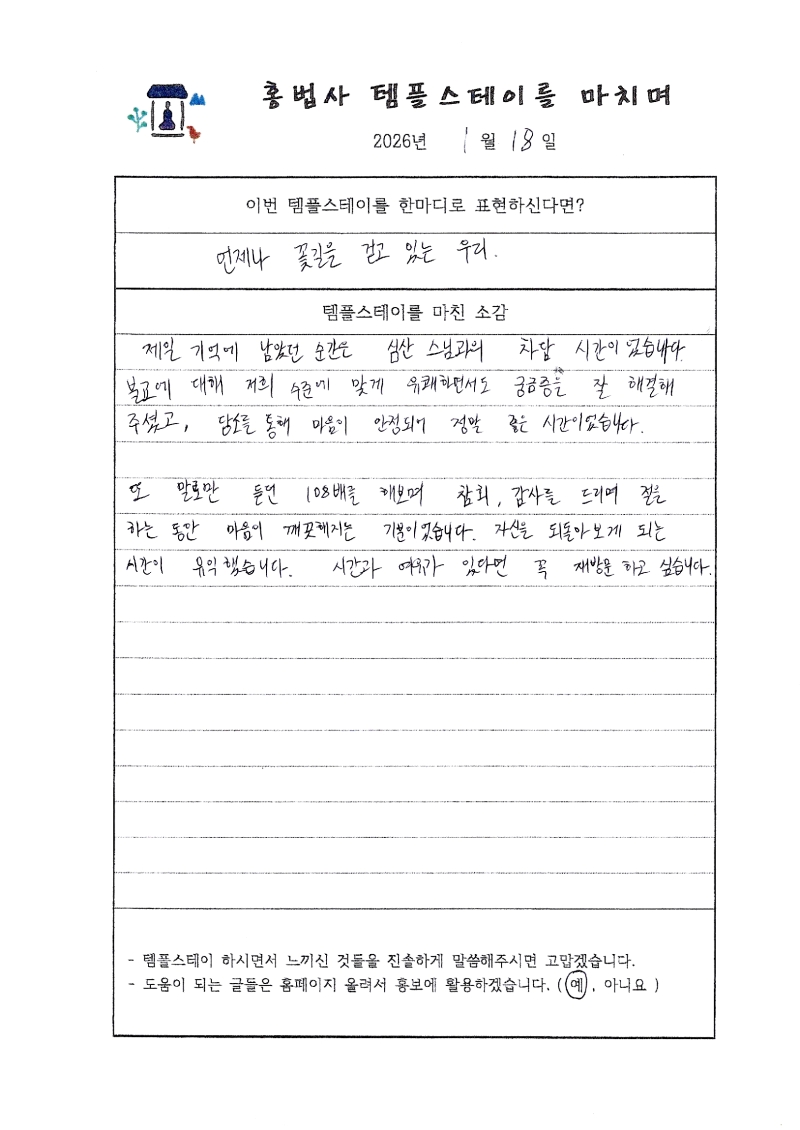 홍법사 템플스테이를 마치며
2026년 1월 18일
이번 템플스테이를 한마디로 표현하신다면?
언제나 꽃길을 걷고 있는 우리.
템플스테이를 마친 소감
제일 기억에 남았던 순간은 심산 스님과의 차담 시간이었습니다
불교에 대해 저희 수준에 맞게 유쾌하면서도 궁금증을 잘 해결해
주셨고, 담소를 통해 마음이 안정되어 정말 좋은 시간이었습니다.
또 말로만 듣던 108배를 해보며 참회, 감사를 드리며 절을
하는 동안 마음이 깨끗해지는 기분이었습니다. 자신을 되돌아보게 되는
시간이 유익했습니다. 시간과 여유가 있다면 꼭 재방문 하고 싶습니다.
- 템플스테이 하시면서 느끼신 것들을 진솔하게 말씀해주시면 고맙겠습니다.
- 도움이 되는 글들은 홈페이지 올려서 홍보에 활용하겠습니다. ( 예 , 아니요 )